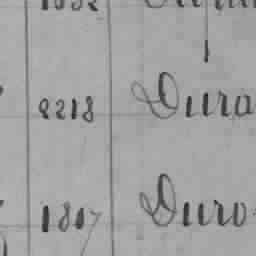 8218 Dura
1807 Duro